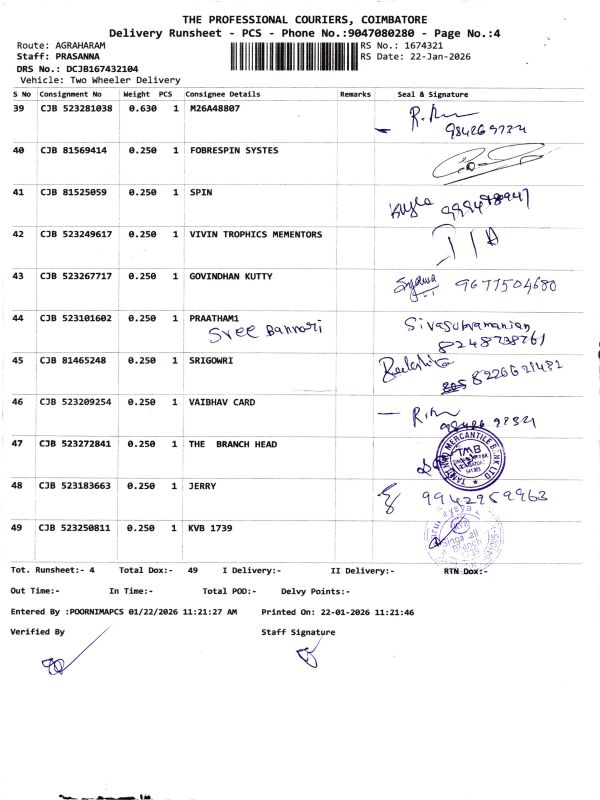 THE PROFESSIONAL COURIERS, COIMBATORE
Delivery Runsheet - PCS - Phone No.:9047080280 - Page No.:4
Route: AGRAHARAM RS No.: 1674321
Staff: PRASANNA RS Date: 22-Jan-2026
DRS No.: DCJB167432104
Vehicle: Two Wheeler Delivery
S No Consignment No Weight PCS Consignee Details Remarks Seal & Signature
39 CJB 523281038 0.630 1 M26A48807
40 CJB 81569414 0.250 1 FOBRESPIN SYSTES
41 CJB 81525059 0.250 1 SPIN
42 CJB 523249617 0.250 1 VIVIN TROPHICS MEMENTORS
43 CJB 523267717 0.250 1 GOVINDHAN KUTTY
9677504680
44 CJB 523101602 0.250 1 PRAATHAM1 Sivasubramanian
Sree Bannari
45 CJB 81465248 0.250 1 SRIGOWRI
46 CJB 523209254 0.250 1 VAIBHAV CARD
47 CJB 523272841 0.250 1 THE BRANCH HEAD
TMB
48 CJB 523183663 0.250 1 JERRY
9942959963
49 CJB 523250811 0.250 1 KVB 1739
Tot. Runsheet:- 4 Total Dox:- 49 I Delivery:- II Delivery:- RTN Dox:-
Out Time:- In Time:- Total POD:- Delvy Points:-
Entered By :POORNIMAPCS 01/22/2026 11:21:27 AM Printed On: 22-01-2026 11:21:46
Verified By Staff Signature